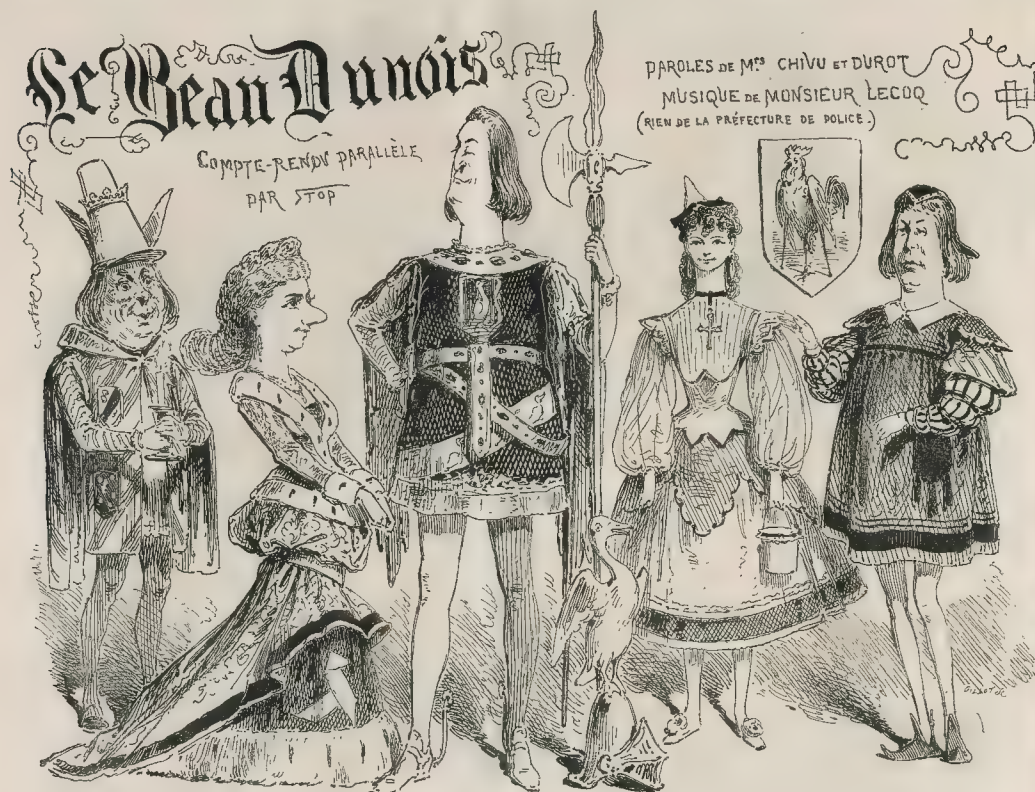 Le Beau Dunois
COMPTE-RENDU PARALLÈLE
PAR STOP
PAROLES DE MRS CHIVU ET DUROT
MUSIQUE DE MONSIEUR LECOQ
(RIEN DE LA PRÉFECTURE DE POLICE.)